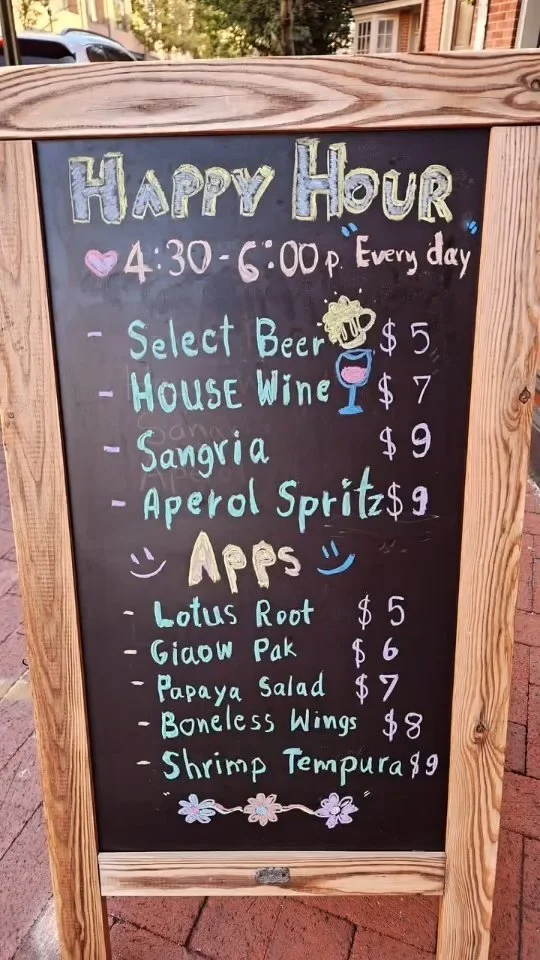 Happy Hour
4:30-6:00p. "Every day"
- Select Beer $5
- House Wine $7
- Sangria $9
- Aperol Spritz $9
Apps
- Lotus Root $5
- Giaow Pak $6
- Papaya Salad $7
- Boneless Wings $8
- Shrimp Tempura $9